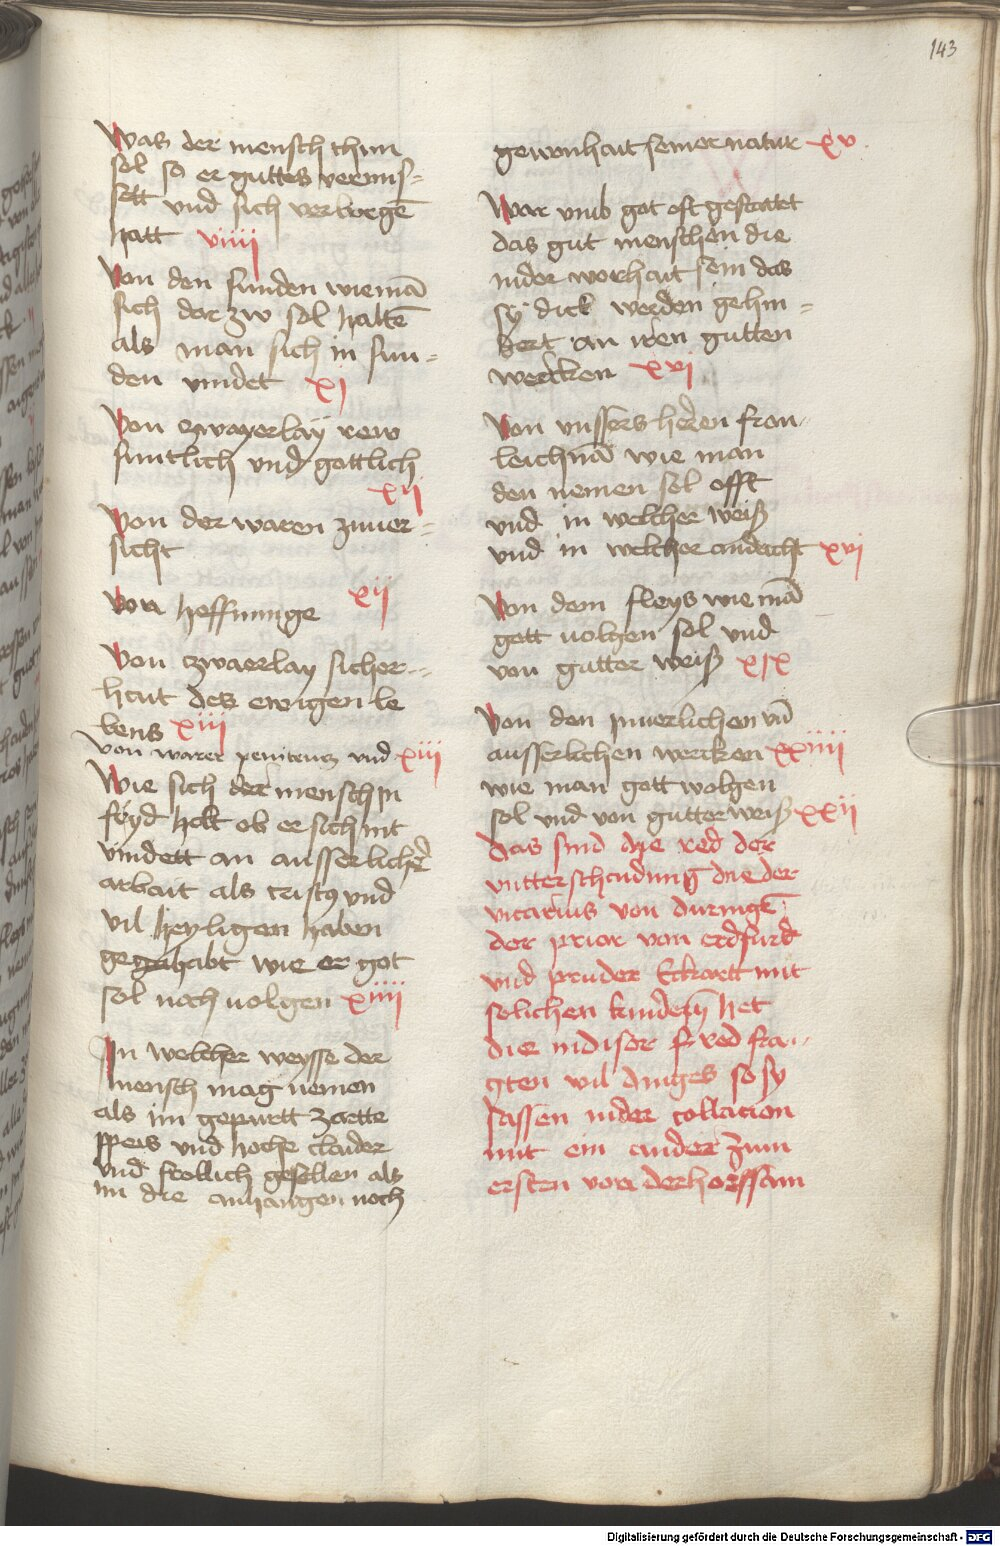 143
Was der mensch thun
sol so er guttes vermis-
sett vnd sich verborgē
hatt viiij
Von den sunden wie mā
sich dar zw sol haltē
als man sich in sun-
den vindet xj
Von zwayerlay rew
suntlich vnd gottlich
xij
Von der waren zuuer-
sicht
xij
Von hoffnunge
Von zwaerlay sicher-
hait des ewigen le
bens xiij
Von warer penitencz vnd xiij
Wie sich der mensch in
fryd helt ob er sich nit
vindett an ausserlicher
arbait als cristus vnd
vil heyligen haben
gehabt wie er got
sol noch uolgen xiiij
In welcher weysse der
mensch mag nemen
als im gepurtt zartte
speis vnd hoche claider
vnd frollich gesellen als
im die anhangen noch
gewonhait seiner natur xv
War vmb got oft gestattet
das gut menschen die
in der worhait sein das
sy dick werden gehin-
dert an iren gutten
wercken xvj
Von vnssers heren fron
leichnā wie man
den nemen sol offt
vnd in welcher weiß
vnd in welcher andacht xvj
Von dem fleys wie mā
gott uolgen sol vnd
von gutter weiß xix
Von den jnnerlichen vn̄
ausserlichen wercken xxiiij
wie man gott wolgen
sol vnd von gutter weiß xxij
Das sind die red der
vntterschaidung die der
vicarius von duringē
der prior von erdfurt
vnd pruder Eckartt mit
solichen kindern het
die in diser red fra-
gten vil dinges so sy
sassen in der collacion
mit ein ander zum
ersten von der horssam
Digitalisierung gefördert durch die Deutsche Forschungsgemeinschaft - DFG